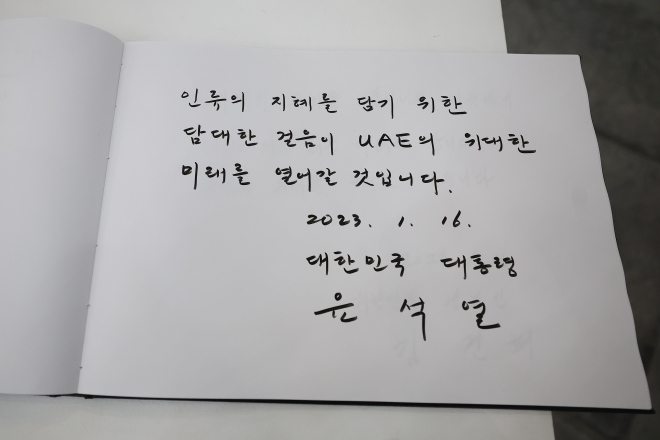 인류의 지혜를 담기 위한
담대한 걸음이 UAE의 위대한
미래를 열어갈 것입니다.
2023. 1. 16.
대한민국 대통령
윤 석 열